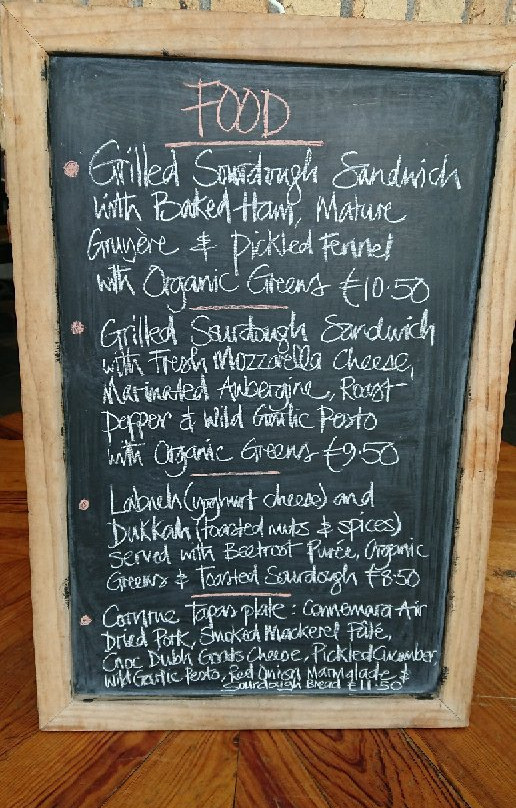 FOOD
Grilled Sourdough Sandwich
with Baked Ham, Mature
Gruyère & Pickled Fennel
with Organic Greens €10.50
Grilled Sourdough Sandwich
with Fresh Mozzarella Cheese,
Marinated Aubergine, Roast
Pepper & Wild Garlic Pesto
with Organic Greens €9.50
Labneh (yoghurt cheese) and
Dukkah (toasted nuts & spices)
served with Beetroot Purée, Organic
Greens & Toasted Sourdough €8.50
Tapas plate: Connemara Air
Dried Pork, Smoked Mackerel Pâté,
Dubh Goats Cheese, Pickled Cucumber
Wild Garlic Pesto, Red Onion Marmalade &
Sourdough Bread €11.50